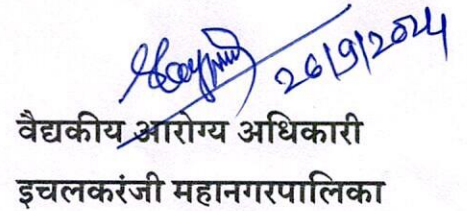 26/9/2024
वैद्यकीय आरोग्य अधिकारी
इचलकरंजी महानगरपालिका